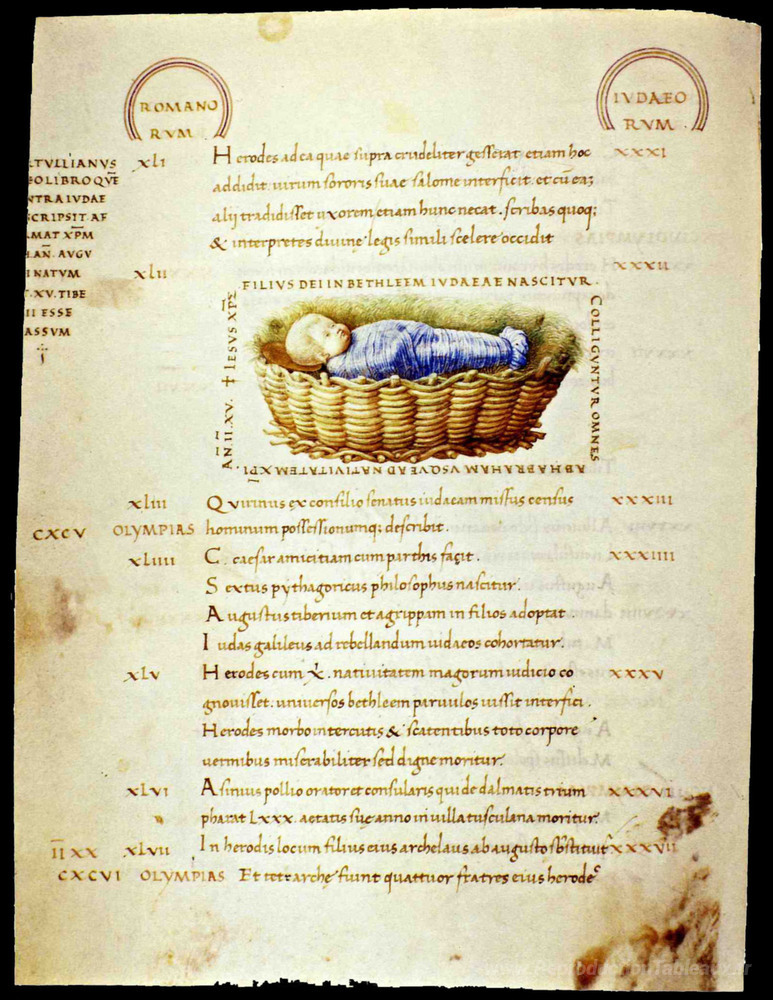 ROMANO
RVM
IVDAEO
RVM
.TVLLIANVS
EO LIBRO QVE
NTRA IVDAE
CRIPSIT AF
.MAT XP̄M
.AN̄. AVGV
I NATVM
.XV. TIBE
II ESSE
ASSVM
XLI Herodes ad ea quae supra crudeliter gesserat etiam hoc XXXI
addidit. uirum sororis suae salome interficit. et cū eā;
alij tradidisset uxorem, etiam hunc necat. scribas quoq;
& interpretes diuinę legis simili scelere occidit
XLII XXXII
FILIVS DEI IN BETHLEEM IVDAEAE NASCITVR.
COLLIGVNTVR OMNES
AB HABRAHAM VSQVE AD NATIVITATEM XPI.
AN̄. II. XV. ✝ IESVS XP̄S
XLIII Quirinus ex consilio senatus iudaeam missus census XXXIII
CXCV OLYMPIAS hominum possessionumq; describit.
XLIIII C. caesar amicitiam cum parthis facit. XXXIIII
Sextus pythagoricus philosophus nascitur.
Augustus tiberium et agrippam in filios adoptat
Iudas galileus ad rebellandum iudaeos cohortatur.
XLV Herodes cum x̄. natiuitatem magorum iudicio co XXXV
gnouisset. uniuersos bethleem paruulos iussit interfici.
Herodes morbo intercutis & scatentibus toto corpore
uermibus miserabiliter sed digne moritur.
XLVI Asinius pollio orator et consularis qui de dalmatis trium XXXVI
pharat LXXX. aetatis suę anno in uilla tusculana moritur.
IIXX XLVII In herodis locum filius eius archelaus ab augusto sbstituit XXXVII
CXCVI OLYMPIAS Et tetrarchę fiunt quattuor fratres eius herode